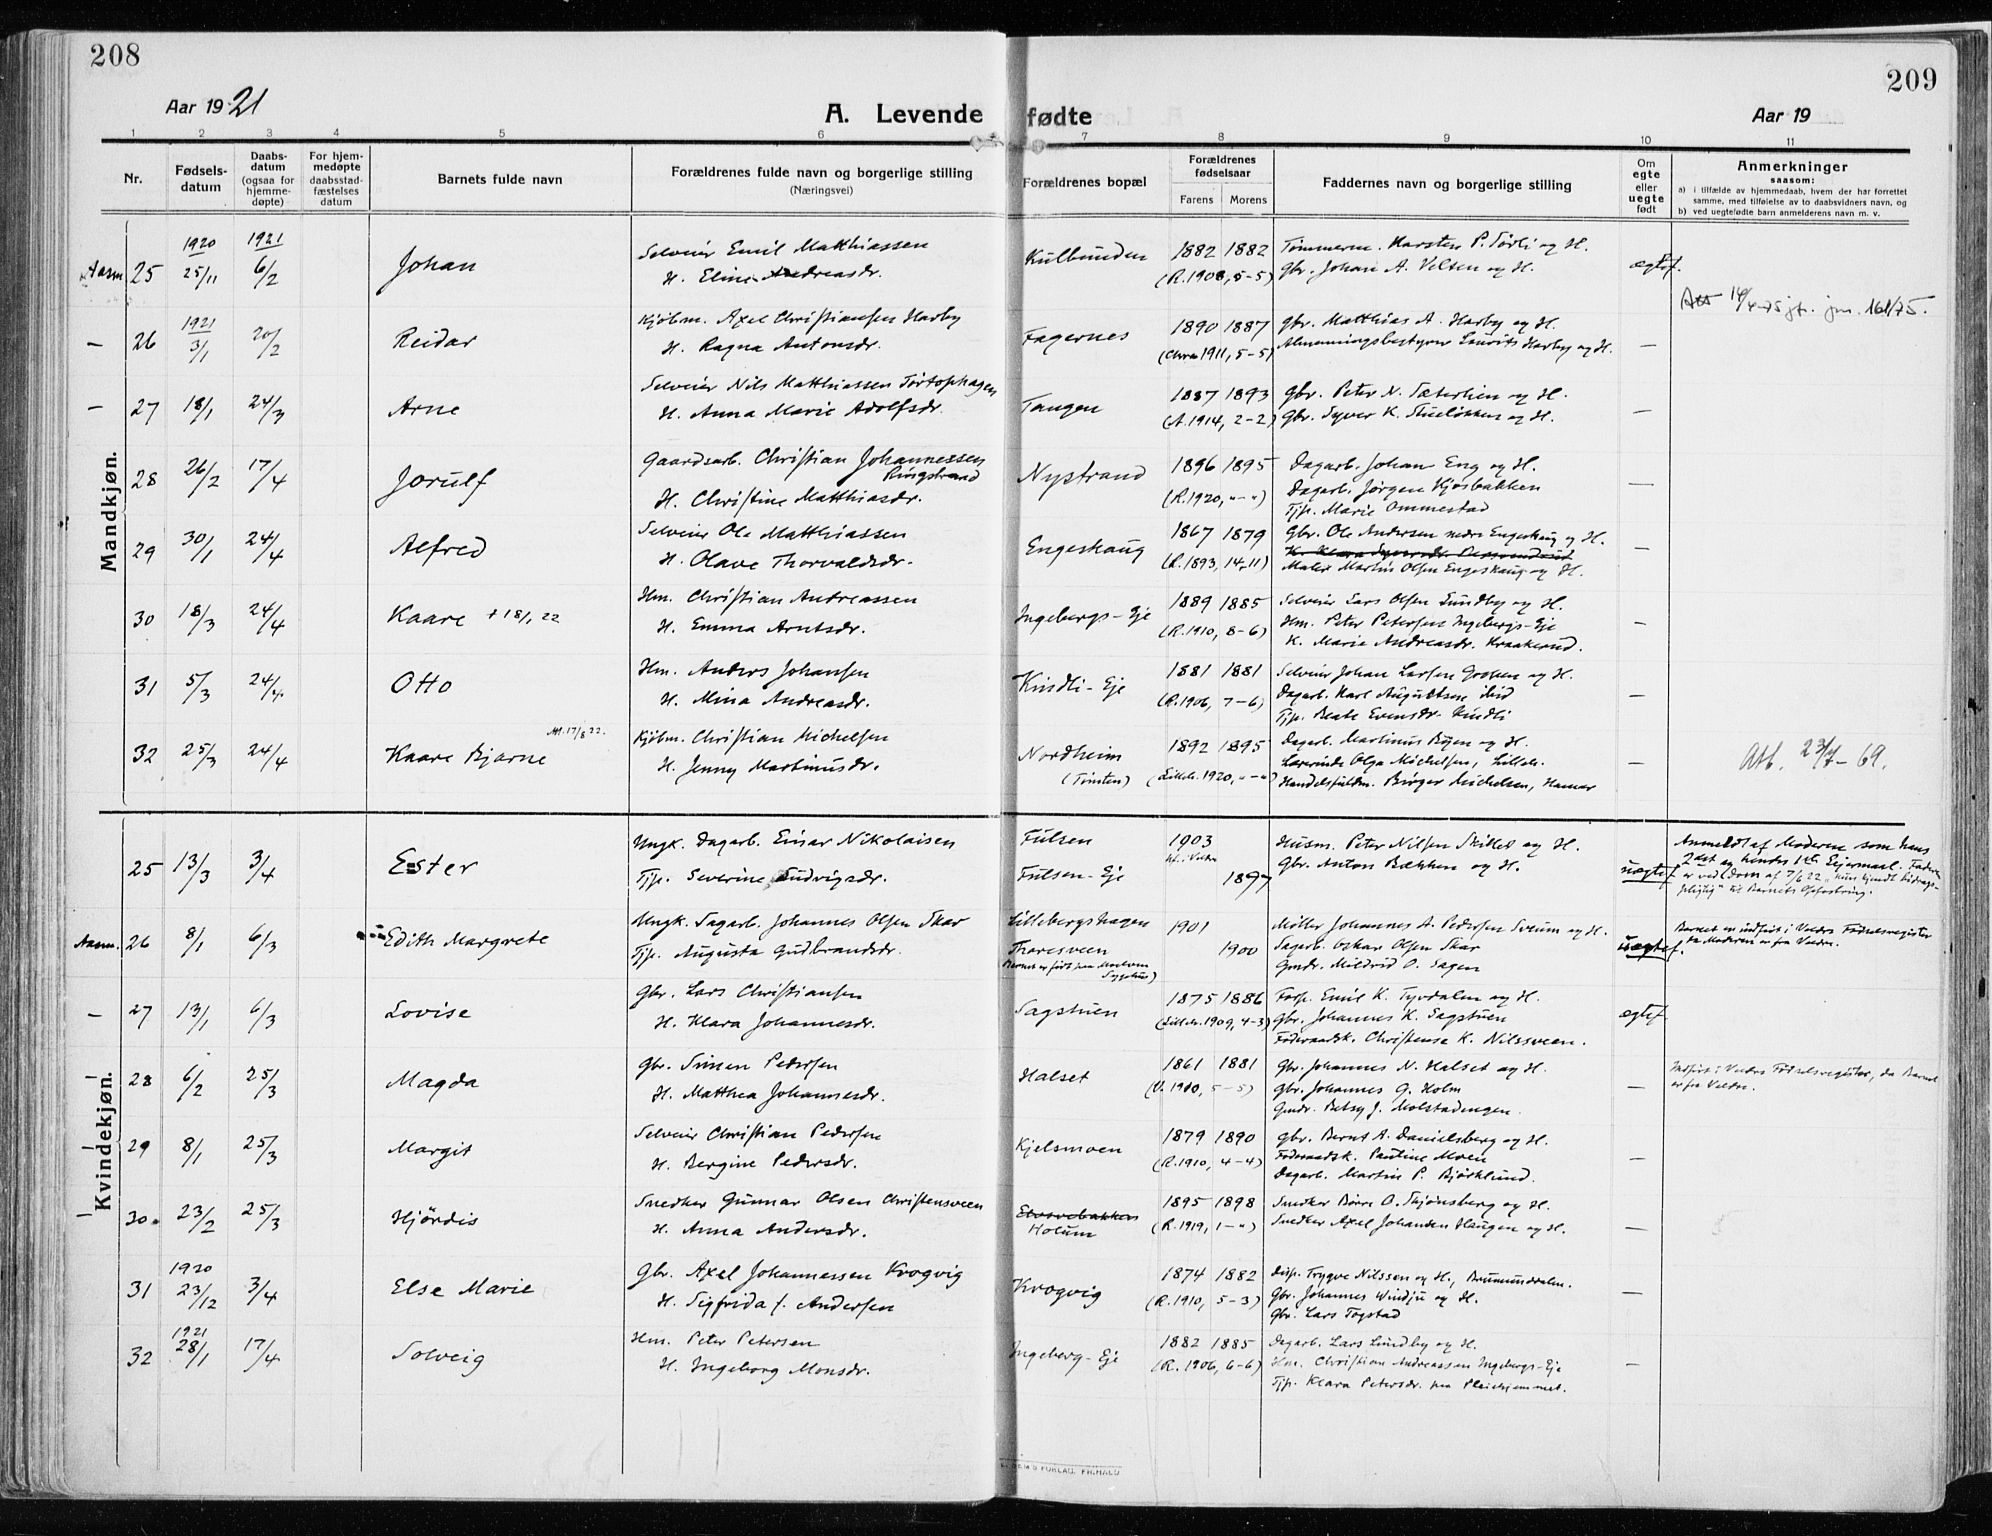 208
209
Aar 1921
A. Levende fødte
Aar 19
1 2 3 4 5 6 7 8 9 10 11
Nr.
Fødselsdatum
Daabsdatum (ogsaa for hjemmedøpte)
For hjemmedøpte daabsstadfæstelses datum
Barnets fulde navn
Forældrenes fulde navn og borgerlige stilling (Næringsvei)
Forældrenes bopæl
Forældrenes fødselsaar
Farens Morens
Faddernes navn og borgerlige stilling
Om egte eller uegte født
Anmerkninger
saasom:
a) i tilfælde av hjemmedaab, hvem der har forrettet samme, med tilføielse av to daabsvidners navn, og
b) ved uegtefødte barn anmelderens navn m. v.
Mandkjøn.
1920 1921
25 25/11 6/2 Johan Selveier Emil Matthiassen Kulbunden 1882 1882 Tømmerm. Karsten P. Tørli og H. egtef.
H. Eline Andreasdr. (R. 1908, 5-5) Gbr. Johan A. Velten og H.
14/4-75 jfr. jnr. 161/75.
1921
— 26 3/1 20/2 Reidar Kjøbm. Axel Christiansen Harby Fagernes 1890 1887 Gbr. Matthias A. Harby og H. —
H. Ragna Antonsdr. (1911, 5-5) Almenningsbestyrer Laurits Harby og H.
— 27 18/1 24/3 Arne Selveier Nils Matthiassen Tørtophagen Tangen 1887 1893 Gbr. Peter N. Sæterlien og H. —
H. Anna Marie Adolfsdr. (A. 1914, 2-2) Gbr. Syver K. Stueløkken og H.
28 26/2 17/4 Jorulf Gaardsarb. Christian Johannessen Ringstrand Nystrand 1896 1895 Dagarb. Johan Eng og H. —
H. Christine Matthiasdr. (R. 1920, "-") Dagarb. Jørgen Kjosbakken
Tjp. Marie Ommestad
29 30/1 24/4 Alfred Selveier Ole Matthiassen Engeskaug 1867 1879 Gbr. Ole Andersen nedre Engeskaug og H. —
H. Olave Thorvaldsdr. (R. 1893, 14-11)
Maler Martin Olsen Engeskaug og H.
30 18/3 24/4 Kaare + 18/1 22 Hm. Christian Andreassen Ingebergs-Eje 1889 1885 Selveier Lars Olsen Lundby og H. —
H. Emma Arntsdr. (R. 1910, 8-6) Hm. Peter Petersen Ingebergs-Eje
K. Marie Andreasdr. Kraakerud.
31 5/3 24/4 Otto Hm. Anders Johansen Kindli-Eje 1881 1881 Selveier Johan Larsen og H. —
H. Mina Andreasdr. (R. 1906, 7-6) Dagarb. Karl Augustsen ibid
Tjp. Beate Evensdr. Kindli
32 25/3 24/4 Kaare Bjarne Att. 17/8 22. Kjøbm. Christian Michelsen Nordheim 1892 1895 Dagarb. Martinus Byen og H. — Att. 23/7-69.
H. Jenny Martinusdr. (Timten) (Lilleh. 1920, "-") Lærerinde Olga Michelsen, Lilleh.
Handelsfuldm. Birger Michelsen, Hamar
Kvindekjøn.
25 13/3 3/4 Ester Ungk. Dagarb. Einar Nikolaisen Fulsen 1903 Husm. Peter Nilsen Skillet og H. uegtef.
Tjp. Severine Ludvigsdr. Fulsen-Eje 1897 Gbr. Anton Bækken og H.
Anmeldt af Moderen som hans 2det og hendes 1ste Leiermaal. Faderen er ved Dom af 7/6 22 "kun kjendt bidragspligtig" til Barnets Opfostring.
26 8/1 6/3 Edith Margrete Ungk. Sagarb. Johannes Olsen Skar Lillebergshagen 1901 Møller Johannes A. Pedersen Sveum og H. uegtef.
Tjp. Augusta Gudbrandsdr. Thoresveen 1900 Sagarb. Oskar Olsen Skar
Gmdr. Mildrid O. Sagen
Barnet er indført i Veldre Fødselsregister da Moderen er fra Veldre.
— 27 13/1 6/3 Lovise Gbr. Lars Christiansen Sagstuen 1875 1886 Forp. Emil K. Tyvdalen og H. egtef.
H. Klara Johannesdr. (Lilleh. 1909, 4-3) Gbr. Johannes K. Sagstuen
Føderaadsk. Christense K. Nilssveen.
28 6/2 25/3 Magda Gbr. Simen Pedersen Halset 1861 1881 Gbr. Johannes N. Halset og H. —
H. Matthea Johannesdr. (V. 1900, 5-5) Gbr. Johannes G. Holm
Gmdr. Betsy J. Molstadengen.
Indført i Veldre Fødselsregister, da Barnet er fra Veldre.
29 8/1 25/3 Margit Selveier Christian Pedersen Kjelsmoen 1879 1890 Gbr. Bernt A. Danielsberg og H. —
H. Bergine Pedersdr. (R. 1910, 4-4) Føderaadsk. Pauline Moen
Dagarb. Martin P. Bjørklund.
30. 23/2 25/3 Hjördis Snedker Gunnar Olsen Christensveen Holum 1895 1898 Snedker Børre O. Skjønsberg og H. —
H. Anna Andersdr. (R. 1919, 1-") Snedker Axel Johansen Haugen og H.
1920
31 23/12 3/4 Else Marie Gbr. Axel Johannessen Krogvig Krogvig 1874 1882 Disp. Trygve Nilssen og H., Brumunddalen. —
H. Sigfrida f. Andersen (R. 1910, 5-3) Gbr. Johannes Windju og H.
Gbr. Lars Togstad
1921
32 28/1 17/4 Solveig Hm. Peter Petersen Ingeberg-Eje 1882 1885 Dagarb. Lars Lundby og H. —
H. Ingeborg Monsdr. (R. 1906, 6-6) Hm. Christian Andreassen Ingebergs-Eje
Tjp. Klara Petersdr. paa Pleiehjemmet.